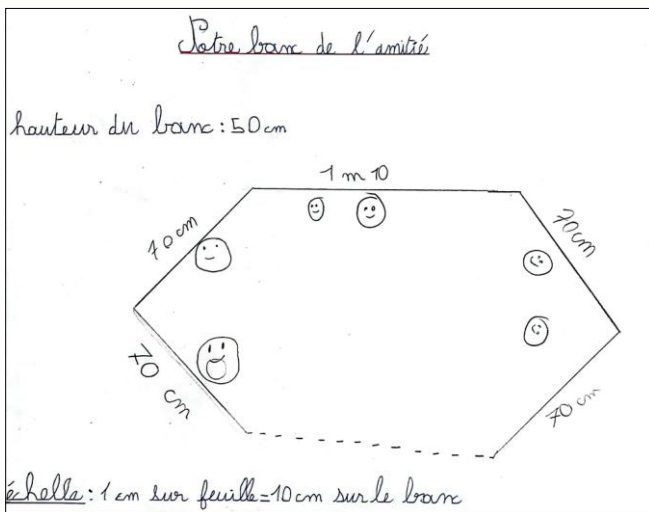 Notre banc de l'amitié
hauteur du banc : 50 cm
1 m 10
70 cm
70 cm
70 cm
70 cm
échelle : 1 cm sur feuille = 10 cm sur le banc